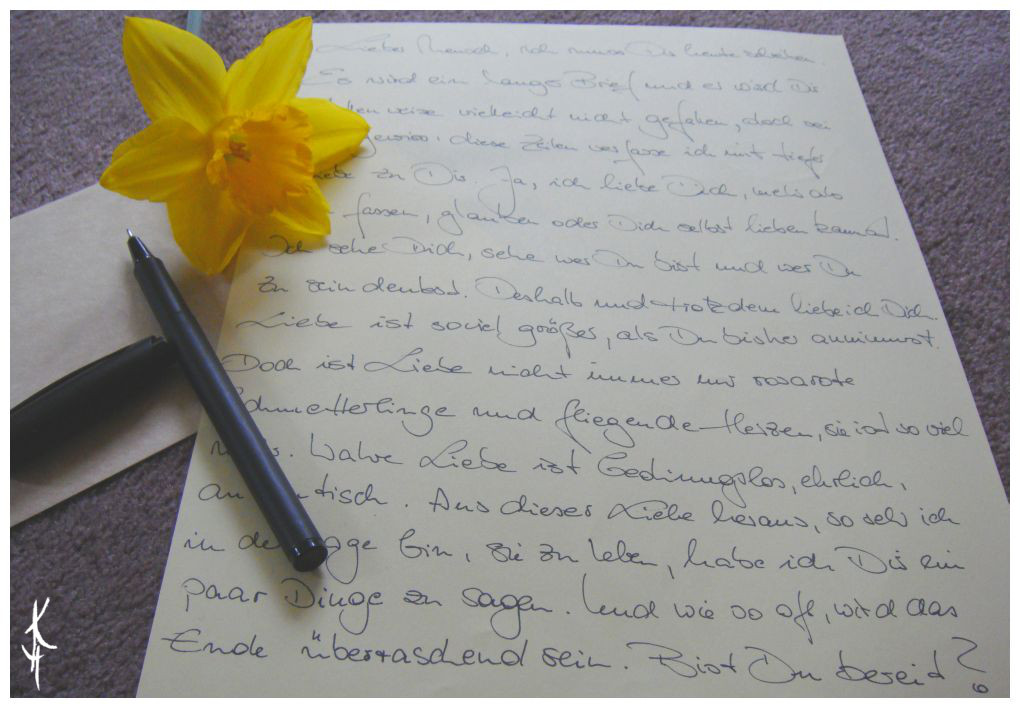 Lieber Mensch, ich muss Dir heute schreiben.
Es wird ein langer Brief und es wird Dir
vielleicht nicht gefallen, doch sei
gewiss: diese Zeilen verfasse ich mit tiefer
zu Dir. Ja, ich liebe Dich, mehr als
fassen, glauben oder Dich selbst lieben kannst.
Ich sehe Dich, sehe wer Du bist und wer Du
zu sein denkst. Deshalb und trotzdem liebe ich Dich.
Liebe ist soviel größer, als Du bisher annimmst.
Doch ist Liebe nicht immer nur rosarote
Schmetterlinge und fliegende Herzen, sie ist so viel
mehr. Wahre Liebe ist bedinungslos, ehrlich,
authentisch. Aus dieser Liebe heraus, so sehr ich
in der Lage bin, sie zu leben, habe ich Dir ein
paar Dinge zu sagen. Und wie so oft, wird das
Ende überraschend sein. Bist Du bereit?